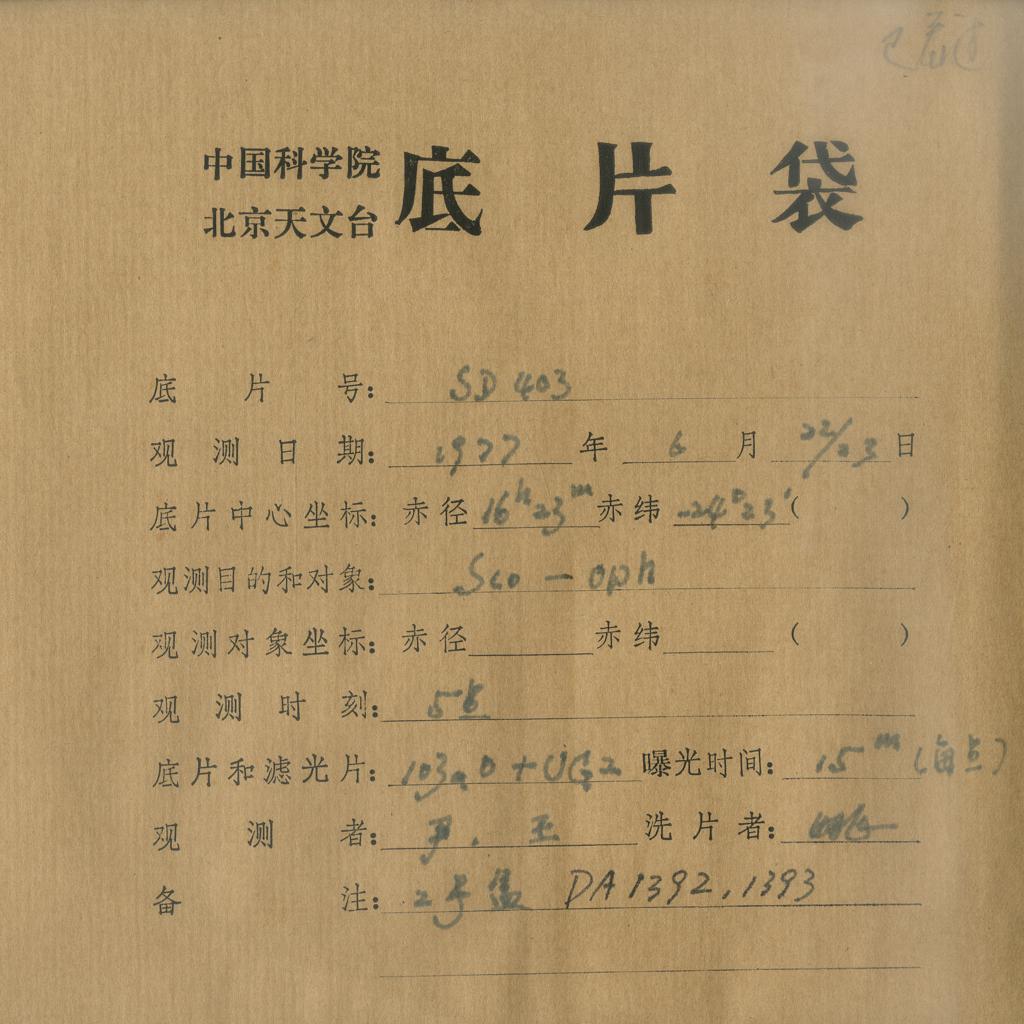 已看过
中国科学院
北京天文台
底片袋
底片号: SD 403
观测日期: 1977 年 6 月 22/23 日
底片中心坐标: 赤径 16h23m 赤纬 -24°23′ ( )
观测目的和对象: Sco — oph
观测对象坐标: 赤径 赤纬 ( )
观测时刻: 5点
底片和滤光片: 103aO + UG2 曝光时间: 15m (每点)
观测者: 尹. 王 洗片者:
备注: 2号 DA 1392, 1393